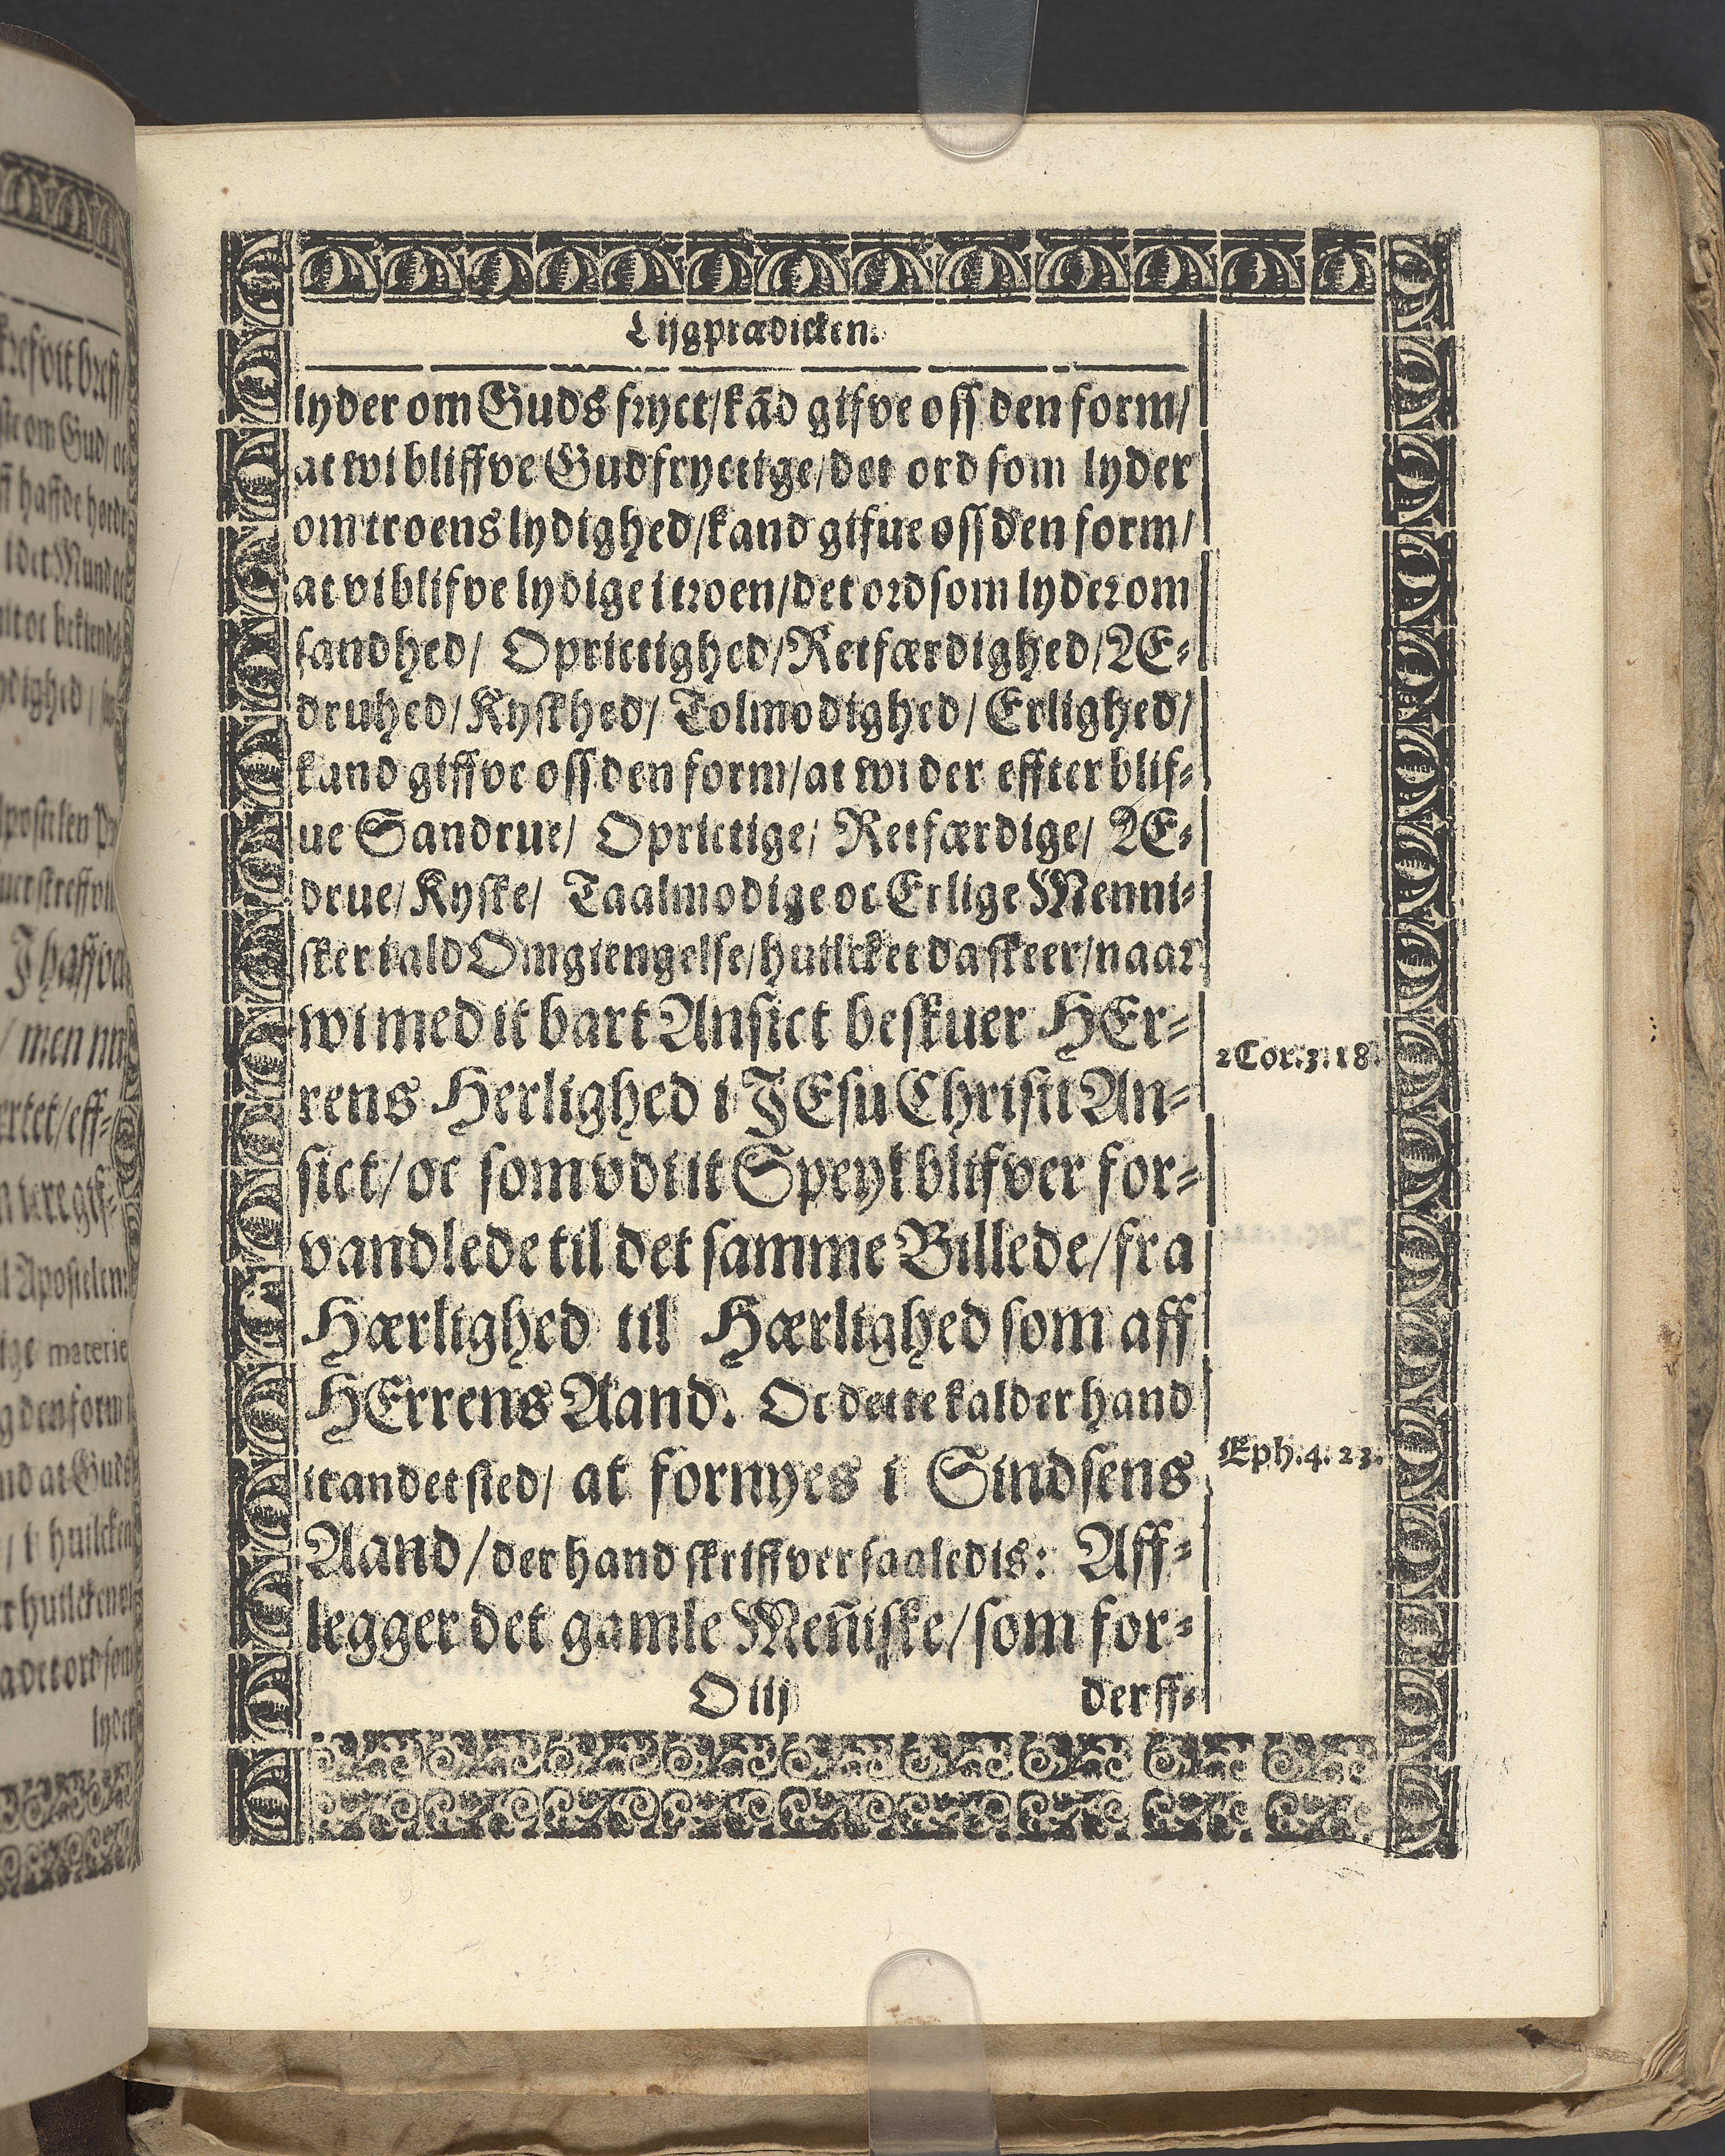 Lijgprædicken.
lyder om Guds fryct/kād gifve oss den form/
at wi bliffve Gudfryctige/det ord som lyder
om troens lydighed/kand gifue oss den form/
at vi blifve lydige i troen/det ord som lyder om
sandhed/ Oprictighed/Retfærdighed/Æ-
druhed/Kyskhed/ Tolmodighed/Erlighed/
kand giffve oss den form/at wi der effter blif-
ue Sandrue/ Oprictige/ Retfærdige/ Æ-
drue/Kyske/ Taalmodige oc Erlige Menni-
sker i ald Omgiengelse/huilcket da skeer/naar
wi med it bart Ansict beskuer HEr-
rens Herlighed i JEsu Christi An-
sict/oc som vdi it Speyl blifver for-
vandlede til det samme Billede/fra
Hærlighed til Hærlighed som aff
HErrens Aand. Oc dette kalder hand
it andet sted/ at fornyes i Sindsens
Aand/der hand skriffver saaledis: Aff-
legger det gamle Meñiske/som for-
O iij derff-
2 Cor. 3. 18.
Eph. 4. 23.